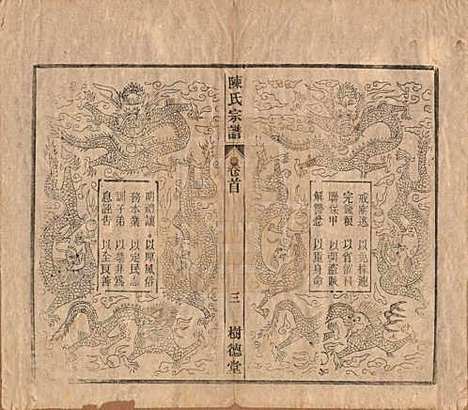 戒匿逃 以免株連
完錢糧 以省催科
聯保甲 以弭盜賊
解讐忿 以重身命
陳氏宗譜
卷首
三
樹德堂
明禮讓 以厚風俗
務本業 以定民志
訓子弟 以禁非為
息誣告 以全良善